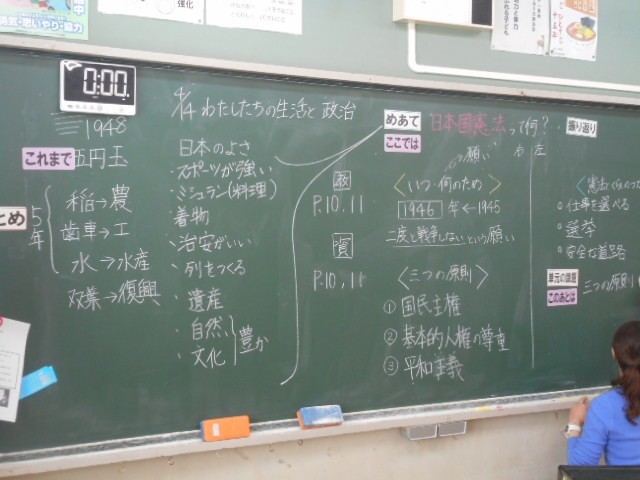 強化
勇気・思いやり・協力
0:00
4/4 わたしたちの生活と政治
1948
これまで
五円玉
とめ
5年
稲→農
歯車→工
水→水産
双葉→復興
日本のよさ
スポーツが強い
ミシュラン(料理)
着物
・治安がいい
・列をつくる
・遺産
・自然
・文化
豊か
めあて
日本国憲法って何?
ここでは
願い
教
P.10,11
資
P.10,11
〈いつ・何のため〉
1946年←1945
二度と戦争しないという願い
〈三つの原則〉
① 国民主権
② 基本的人権の尊重
③ 平和主義
右 左
振り返り
〈憲法
仕事を選べる
選挙
安全な道路
単元の課題
このあとは
三つの原則